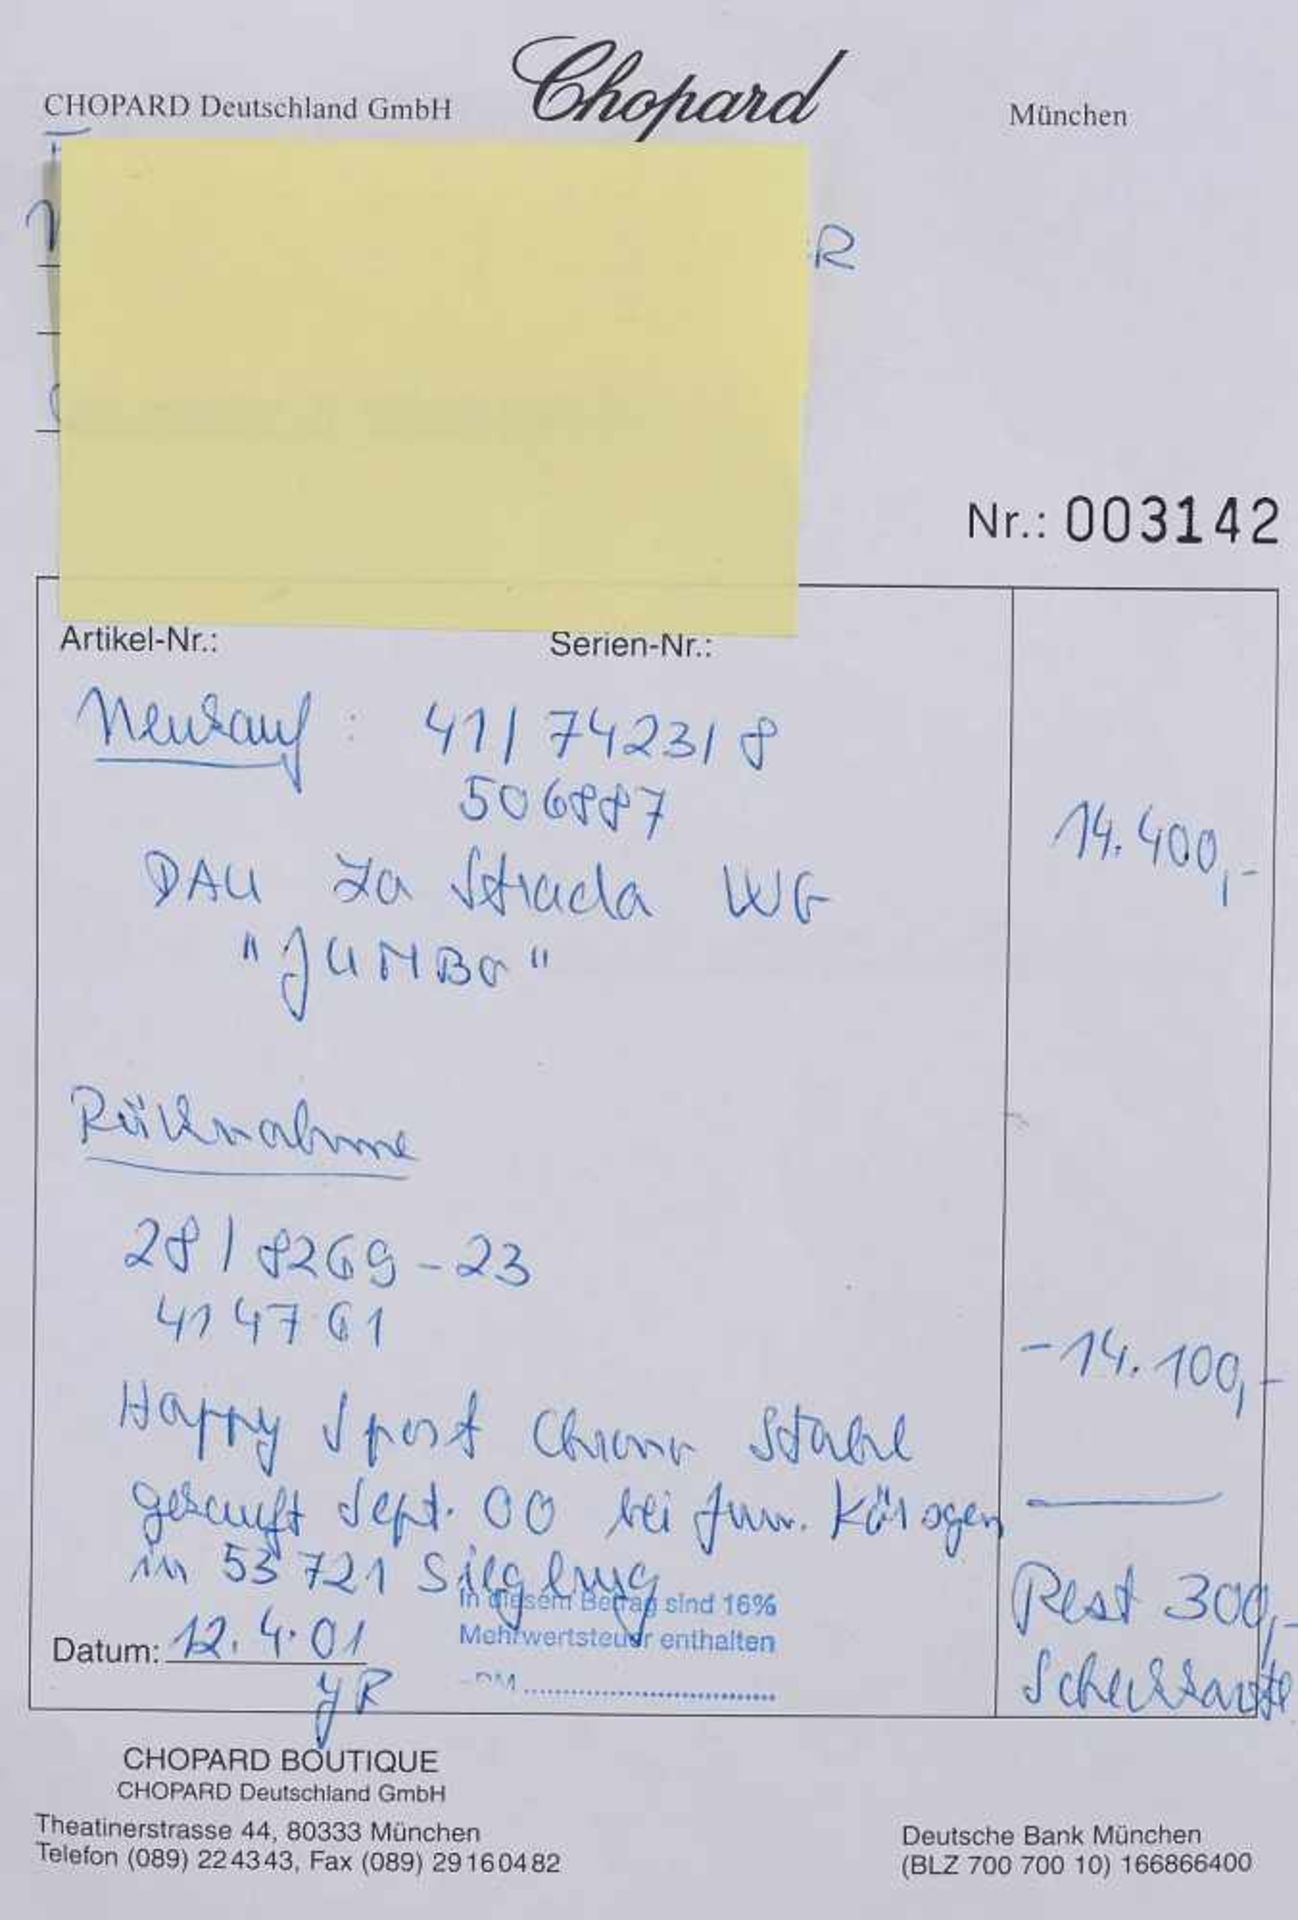 CHOPARD Deutschland GmbH
Chopard
München
R
Nr.: 003142
Artikel-Nr.: Serien-Nr.:
Neukauf : 41/7423/8
506887
14.400,-
DAU La Strada WG
"JUMBO"
Rücknahme
28/8269-23
414761
-14.100,-
Happy Sport Chrono Stahl
gekauft Sept. 00 bei Juw.
in 53721 Siegburg
Rest 300,-
In diesem Betrag sind 16%
Mehrwertsteuer enthalten
-DM
Datum: 12.4.01
Scheckkarte
CHOPARD BOUTIQUE
CHOPARD Deutschland GmbH
Theatinerstrasse 44, 80333 München
Telefon (089) 224343, Fax (089) 29160482
Deutsche Bank München
(BLZ 700 700 10) 166866400